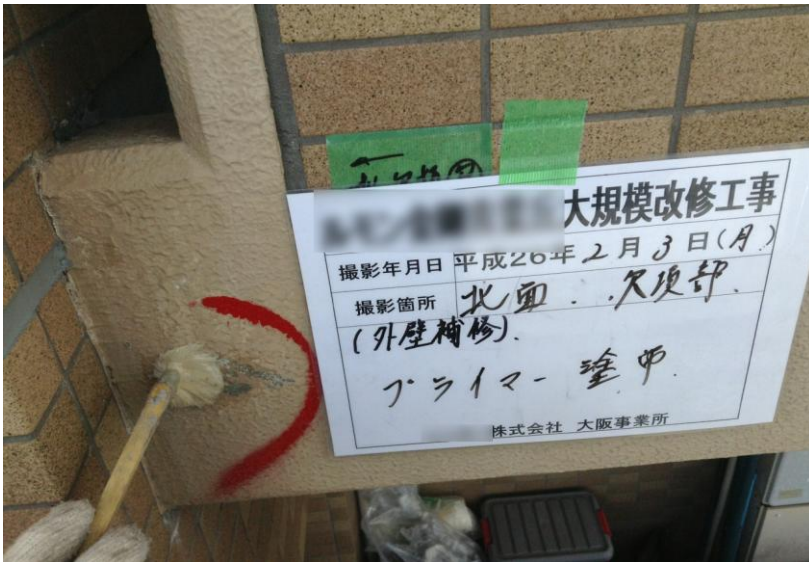 大規模改修工事
撮影年月日 平成26年2月3日(月)
撮影箇所 北面. .欠損部.
(外壁補修).
プライマー 塗布.
株式会社 大阪事業所